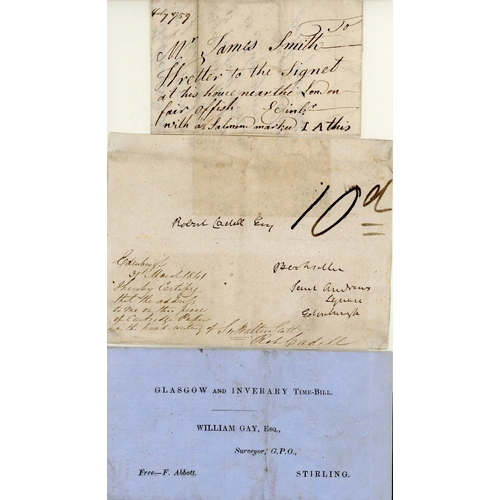 July 1759
To
Mr James Smith
Wretter to the Signet
at his house near the London
fair Offish Edinbr
with a Salmon marked I A this
10d
Robert Cadell Esq
Bookseller
Saint Andrews
Square
Edinburgh
Edinburgh
31 March 1841
I hereby Certify
that the address
to me on this piece
of Cartridge Paper
is the hand writing of Sir Walter Scott
Rob Cadell
GLASGOW AND INVERARY TIME-BILL.
WILLIAM GAY, ESQ.,
Surveyor, G.P.O.,
Free—F. Abbott.
STIRLING.